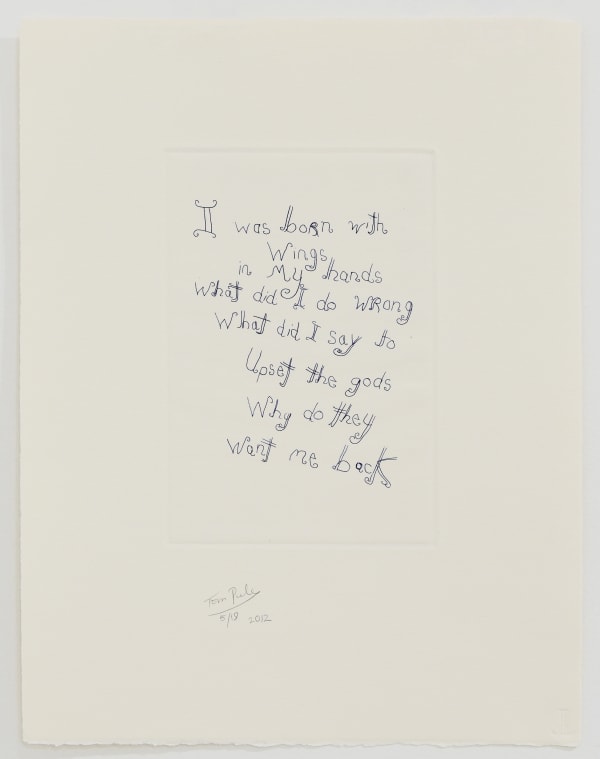 I was born with
Wings
in My hands
What did I do wRong
What did I say to
Upset the gods
Why do they
want me back
Tom Pule
5/18 2012